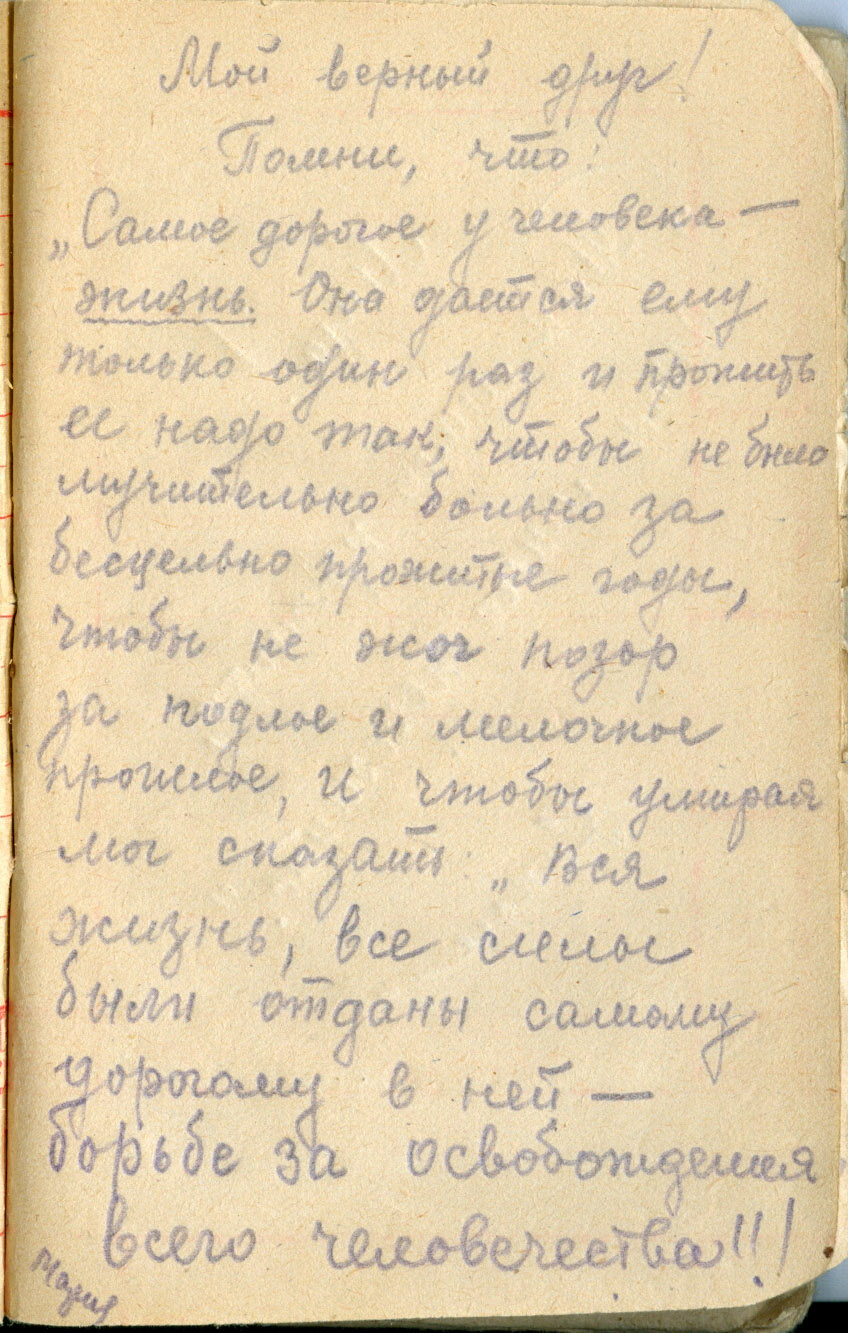 Мой верный друг!
Помни, что:
„Самое дорогое у человека —
жизнь. Она дается ему
только один раз и прожить
ее надо так, чтобы не было
мучительно больно за
бесцельно прожитые годы,
чтобы не жог позор
за подлое и мелочное
прошлое, и чтобы умирая
мог сказать: „Вся
жизнь, все силы
были отданы самому
дорогому в ней —
борьбе за освобождения
всего человечества!!!
Мария